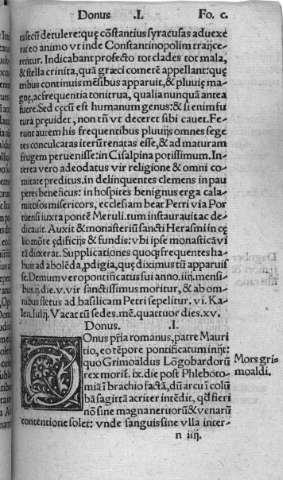 Donus .I. Fo. c.
niscem detulere: quę cōstantius syracusas aduexe
rat eo animo vt inde Constantinopolim traijce-
rentur. Indicabant profecto tot clades tot mala,
& stella crinita, quā gręci cometē appellant: quę
tribus continuis mēsibus apparuit, & pluuię ma-
gnę, ac frequentia tonitrua, qualia nunquā antea
fuere. Sed cęcū est humanum genus: & si enim fu
tura pręuidet, non tñ vt deceret sibi cauet. Fe-
runt autem his frequentibus pluuijs omnes sege
tes conculcatas iterū renatas esse, & ad maturam
frugem peruenisse: in Cisalpina potissimum. In
terea vero adeodatus vir religione & omni co-
mitate preditus, in delinquentes clemens in pau
peres beneficus: in hospites benignus erga cala-
mitosos misericors, ecclesiam beat Petri via Por
tuensi iuxta pontē Meruli, tum instaurauit ac de
dicauit. Auxit & monasteriū sancti Herasmi in cę
lio mōte ędificijs & fundis: vbi ipse monasticā vi
tā duxerat. Supplicationes quoq; frequentes ha-
buit ad abolēda, pdigia, quę diximus tū apparuis
se. Demum vero pontificatus sui anno .iiij. mensi-
bus ij. die. v. vir sanctissimus moritur, & ab om-
nibus fletus ad basilicam Petri sepelitur. vi. Ka-
len. Iulij. Vacat tū sedes. mē. quattuor dies. xv.
Donus. .I.
Onus pria romanus, patre Mauri
tio, eo tēpore pontificatum inijt:
quo Grimoaldus Lōgobardorū
rex moritur. ix. die post Phleboto-
miā ī brachio factā, dū arcu ī colū
bā sagittā acriter intēdit, qd fieri
nō sine magna neruorū & venarū
contentione solet: vnde sanguis sine vlla inter-
Mors gri
moaldi.
n iiij.